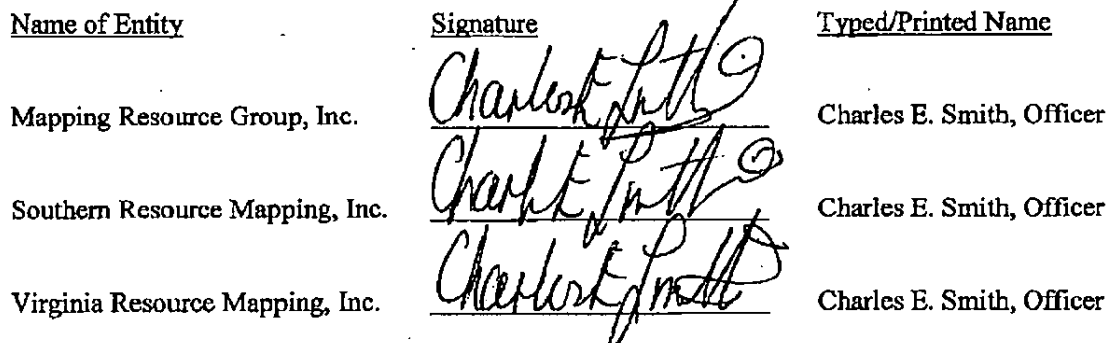 Name of Entity Signature Typed/Printed Name
Mapping Resource Group, Inc. Charles E Smith Charles E. Smith, Officer
Southern Resource Mapping, Inc. Charles E Smith Charles E. Smith, Officer
Virginia Resource Mapping, Inc. Charles E Smith Charles E. Smith, Officer